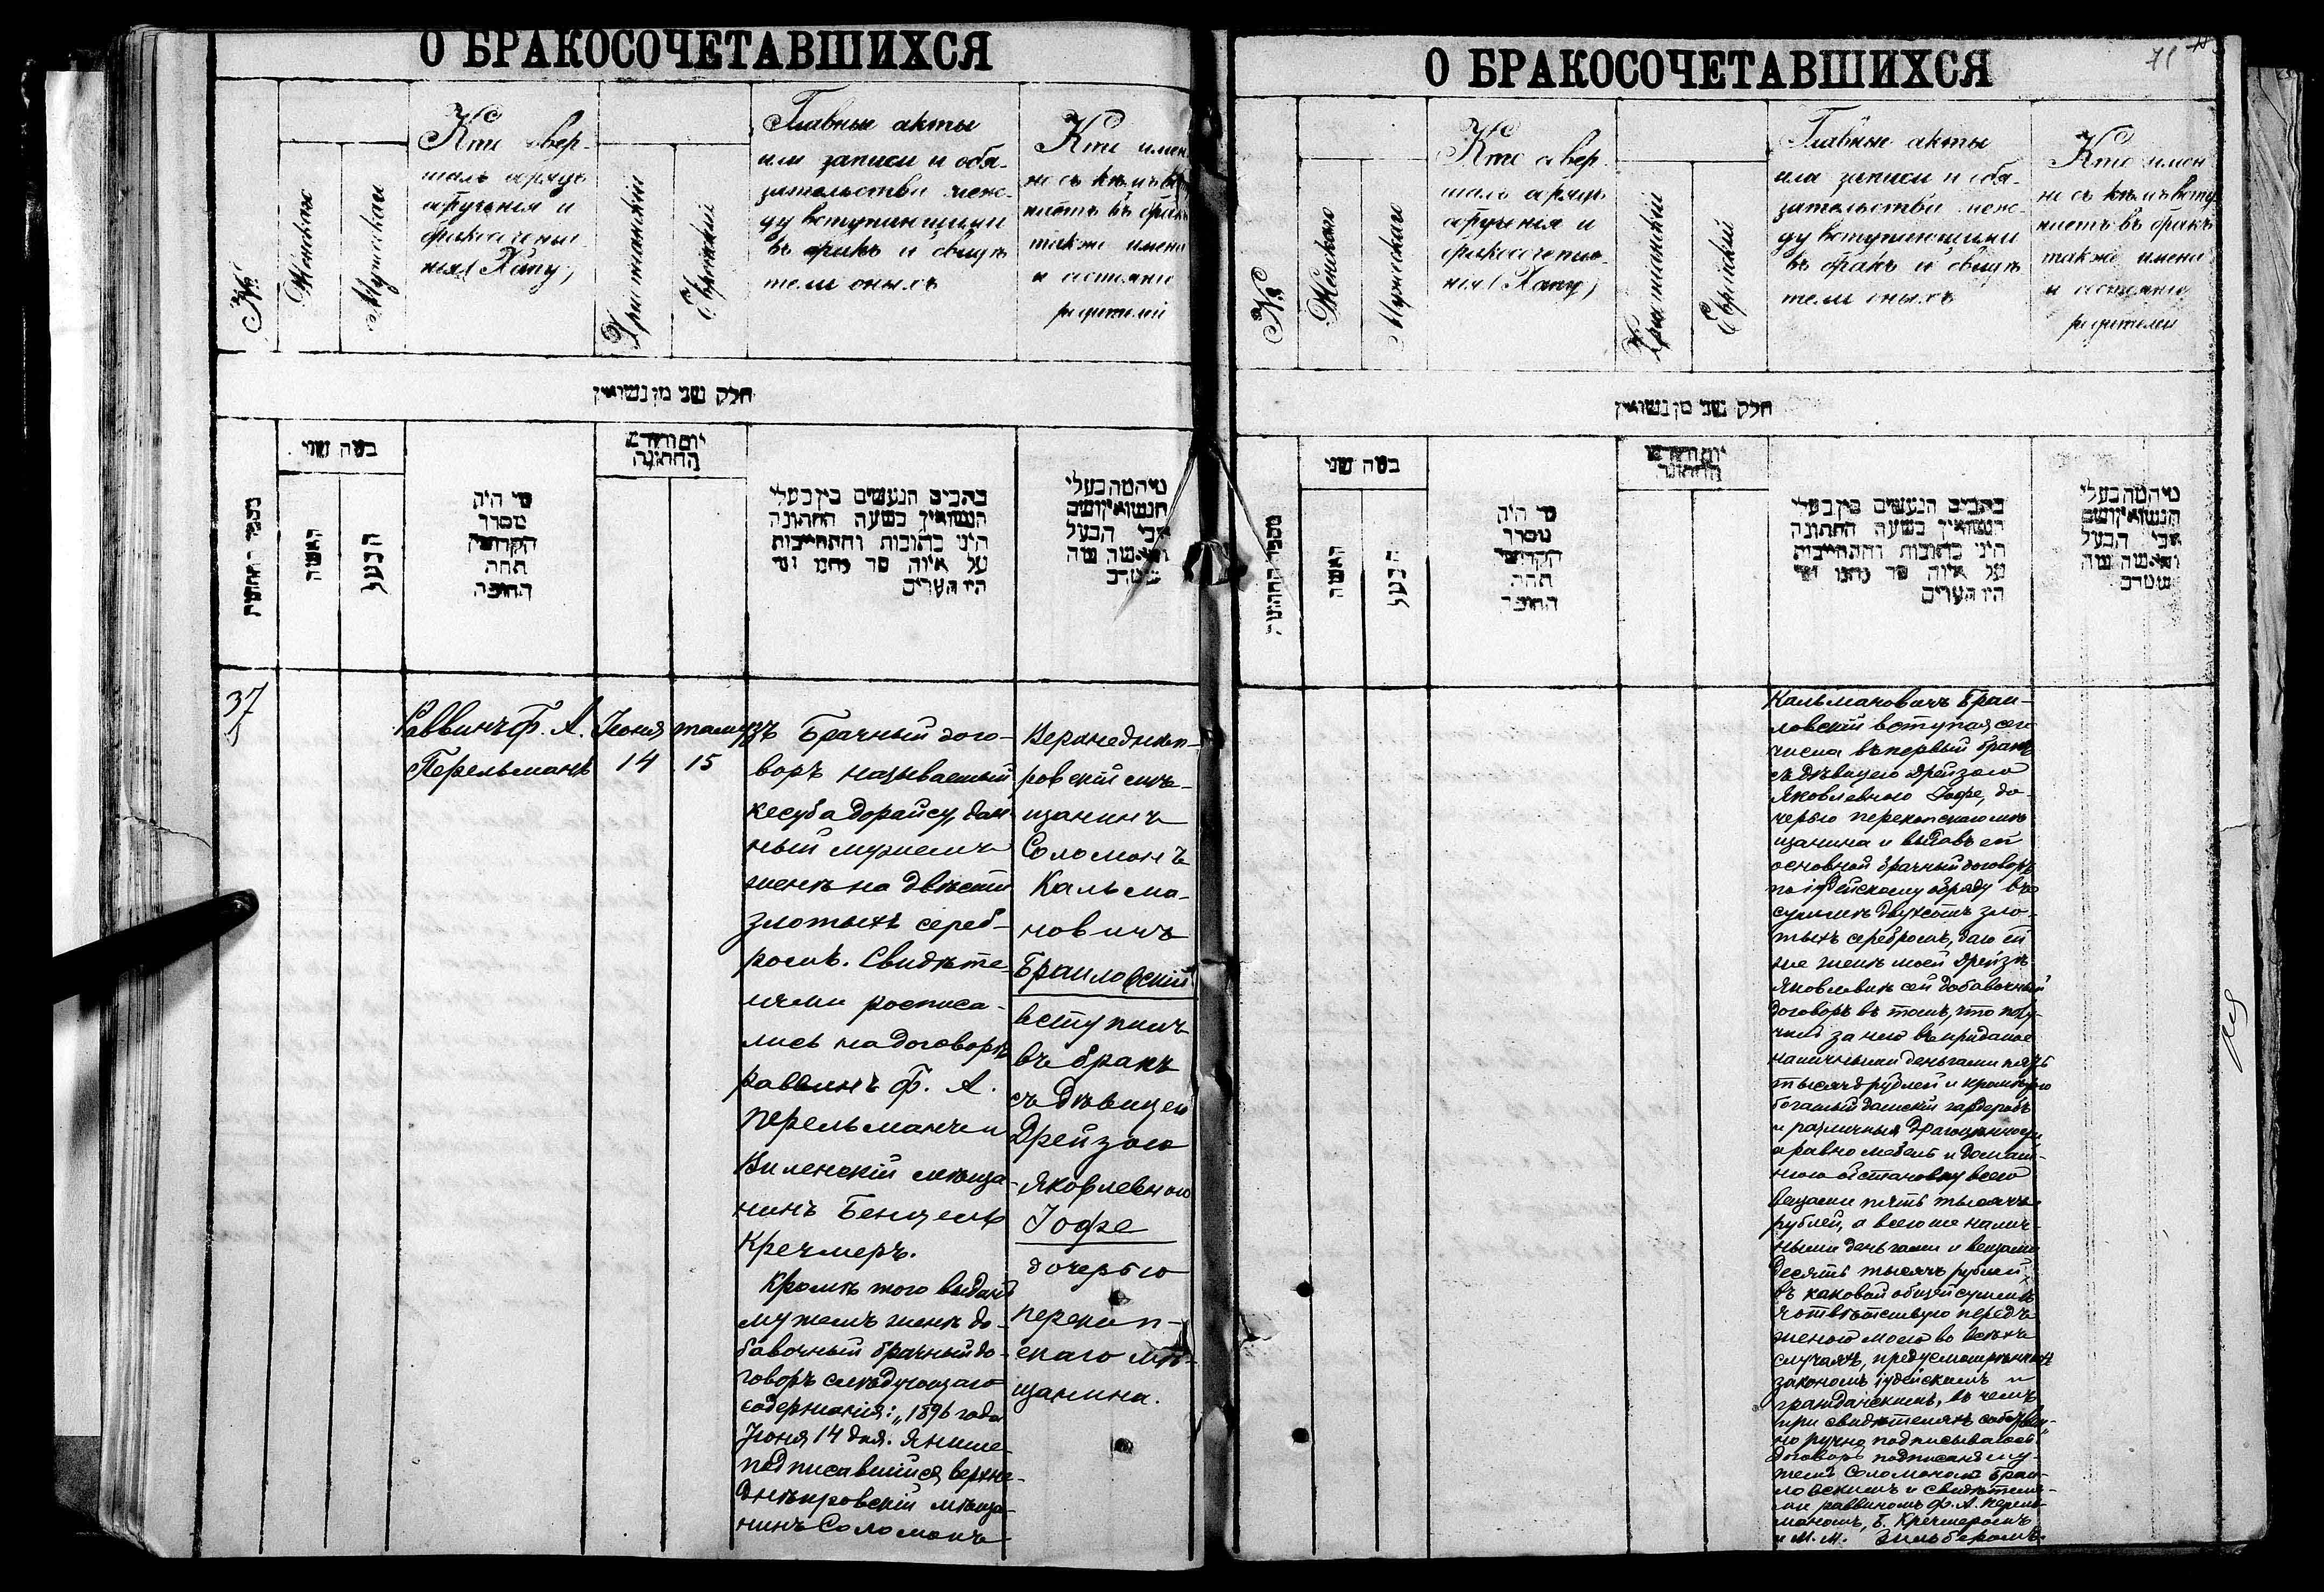 О БРАКОСОЧЕТАВШИХСЯ
№
Женскаго
Мужескаго
Кто совер-
шалъ обрядъ
обрученія и
бракосочета-
нія (Хапу)
Христіанскій
Еврейскій
Главные акты
или записи и обя-
зательства меж-
ду вступающими
въ бракъ и свидѣ
тели оныхъ
Кто имен
но съ кѣмъ всту
паетъ въ бракъ
также имена
и состояніе
родителей
חלק שני מן נשואין
מספר החתונה
כמה שני
האשה
הבעל
מי היה
מסדר
הקדושין
תחת
החופה
יום וחודש
החתונה
כתבים הנעשים בין בעלי
הנשואין בשעה החתונה
היני כתובות והתחייבות
על איזה סך נתנו ומי
היו העדים
מי המה בעלי
הנשואין ושם
אבי הבעל
והאשה
37
Раввинъ Ф. А.
Перельманъ
Іюня
14
тамузъ
15
Брачный дого-
воръ называемый
кесуба дорайсу, дан-
ный мужемъ
женѣ на двѣсти
злотыхъ сереб-
ромъ. Свидѣте-
лями росписа-
лись на договорѣ
раввинъ Ф. А.
Перельманъ и
Виленскій мѣща-
нинъ Бенцель
Кречмеръ.
Кромѣ того выданъ
мужемъ женѣ до-
бавочный брачный до-
говоръ слѣдующаго
содержанія: „1896 года
Іюня 14 дня. Я ниже-
подписавшійся верхне-
днѣпровскій мѣща-
нинъ Соломонъ
Верхнеднѣп-
ровскій мѣ-
щанинъ
Соломонъ
Кальма-
новичъ
Браиловскій
вступилъ
въ бракъ
съ дѣвицею
Дрейзою
Яковлевною
Іофе
дочерью
перекоп-
скаго мѣ-
щанина.
О БРАКОСОЧЕТАВШИХСЯ
71
№
Женскаго
Мужескаго
Кто совер
шалъ обрядъ
обрученія и
бракосочета-
нія (Хапу)
Христіанскій
Еврейскій
Главные акты
или записи и обя-
зательства меж-
ду вступающими
въ бракъ и свидѣ
тели оныхъ
Кто имен
но съ кѣмъ всту
паетъ въ бракъ
также имена
и состояніе
родителей
חלק שני מן נשואין
מספר החתונה
כמה שני
האשה
הבעל
מי היה
מסדר
הקדושין
תחת
החופה
יום וחודש
החתונה
כתבים הנעשים בין בעלי
הנשואין בשעה החתונה
היני כתובות והתחייבות
על איזה סך נתנו ומי
היו העדים
מי המה בעלי
הנשואין ושם
אבי הבעל
והאשה
Кальмановичъ Браи-
ловскій вступая сего
числа въ первый бракъ
съ дѣвицею Дрейзою
Яковлевною Іофе, до-
черью перекопскаго мѣ
щанина и выдавъ ей
основной брачный договоръ
по іудейскому обряду въ
суммѣ двухсотъ зло-
тыхъ серебромъ, даю ей
же женѣ моей Дрейзѣ
Яковлевнѣ сей добавочный
договоръ въ томъ, что полу-
чилъ за нею въ приданое
наличными деньгами пять
тысячъ рублей и кромѣ того
богатый дамскій гардеробъ
и различныя драгоцѣнности
а равно мебель и домаш-
нюю обстановку всего
вещами пять тысячъ
рублей, а всего же налич-
ными деньгами и вещами
десять тысячъ рублей,
въ каковой общей суммѣ
я отвѣтствую передъ
женою моею во всѣхъ
случаяхъ, предусмотрѣнныхъ
закономъ іудейскимъ и
гражданскимъ, въ чемъ
при свидѣтеляхъ собствен-
но ручно подписываюсь."
Договоръ подписанъ му-
жемъ Соломономъ Браи-
ловскимъ и свидѣтеля-
ми раввиномъ Ф. А. Перель-
маномъ, Б. Кречмеромъ
и М. М. Зильберомъ.